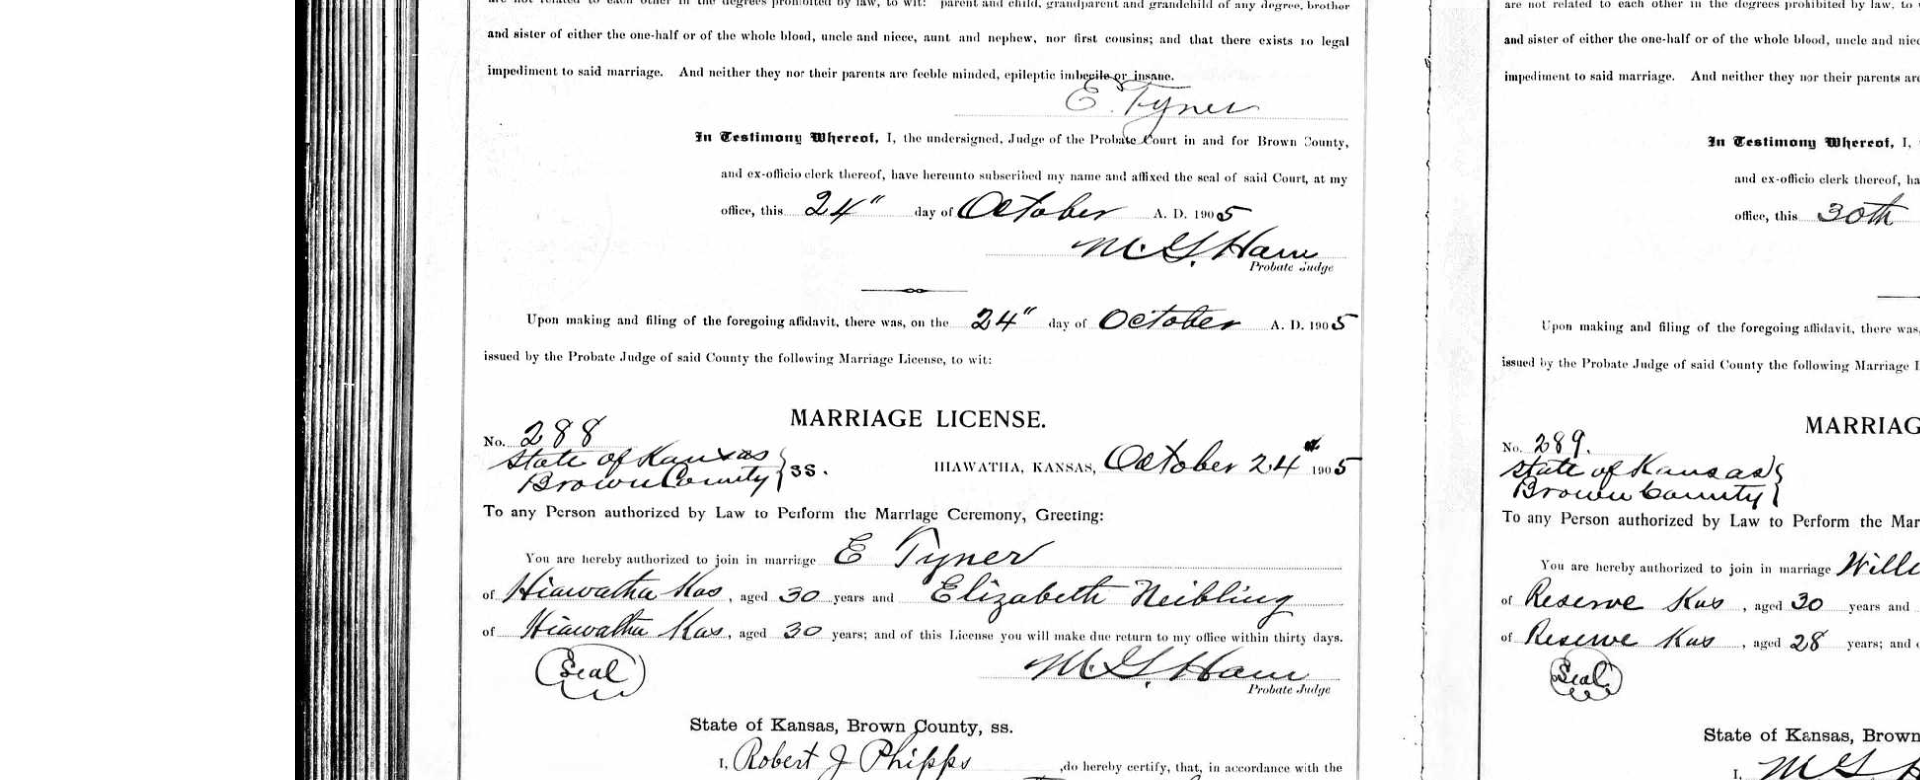 are not related to each other in the degrees prohibited by law, to wit: parent and child, grandparent and grandchild of any degree, brother
and sister of either the one-half or of the whole blood, uncle and niece, aunt and nephew, nor first cousins; and that there exists no legal
impediment to said marriage. And neither they nor their parents are feeble minded, epileptic imbecile or insane.
E. Tyner
In Testimony Whereof, I, the undersigned, Judge of the Probate Court in and for Brown County,
and ex-officio clerk thereof, have hereunto subscribed my name and affixed the seal of said Court, at my
office, this 24" day of October A. D. 1905
M. G. Ham
Probate Judge
Upon making and filing of the foregoing affidavit, there was, on the 24" day of October A. D. 1905
issued by the Probate Judge of said County the following Marriage License, to wit:
MARRIAGE LICENSE.
No. 288
State of Kansas
Brown County } ss.
HIAWATHA, KANSAS, October 24" 1905
To any Person authorized by Law to Perform the Marriage Ceremony, Greeting:
You are hereby authorized to join in marriage E Tyner
of Hiawatha Kas, aged 30 years and Elizabeth Neibling
of Hiawatha Kas, aged 30 years; and of this License you will make due return to my office within thirty days.
Seal
M. G. Ham
Probate Judge
State of Kansas, Brown County, ss.
I, Robert J Phipps, do hereby certify, that, in accordance with the
are not related to each other in the degrees prohibited by law, to
and sister of either the one-half or of the whole blood, uncle and
impediment to said marriage. And neither they nor their parents are
In Testimony Whereof, I,
and ex-officio clerk thereof,
office, this 30th
Upon making and filing of the foregoing affidavit, there was,
issued by the Probate Judge of said County the following Marriage
No. 289.
State of Kansas
Brown County }
To any Person authorized by Law to Perform the
You are hereby authorized to join in marriage
of Reserve Kas, aged 30 years and
of Reserve Kas, aged 28 years; and
Seal
State of Kansas, Brown
I,